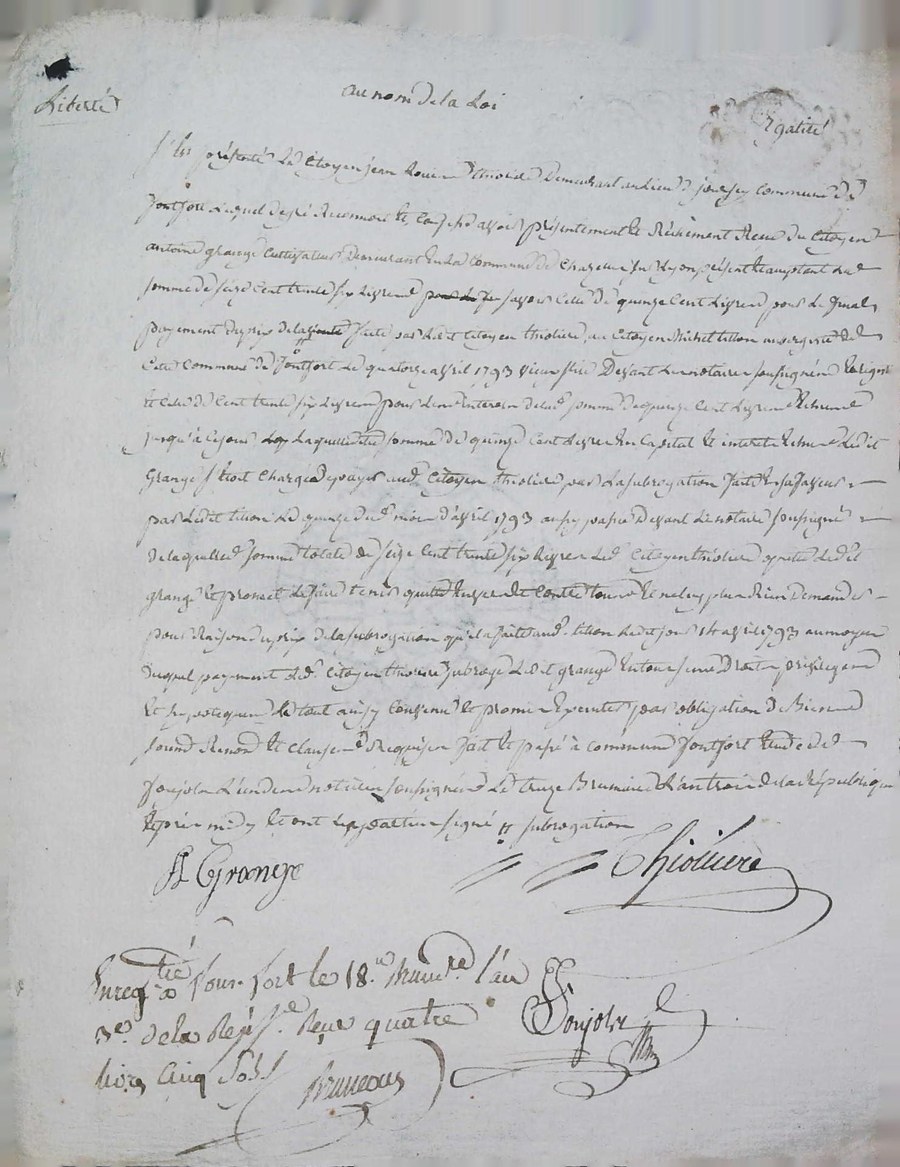 Liberté
au nom de la Loi
Egalité
S'est présenté Le Citoyen jean thiolier Demeurant au Lieu commune de
fontfort Lequel de gré Reconnoit et Confesse avoir présentement et Réelement Receu du Citoyen
antoine grange Cultivateur Demeurant En La Commune De Chazelle sur Lyon présent acceptant La
somme de seize Cent trente six Livres savoir Celle De quinze Cent Livres pour Le final
payement du prix de la faite par Ledit Citoyen thioliere au Citoyen Michel tillon aubergiste de
Cette Commune de fontfort Le quatorze avril 1793 vieux stile Devant Le notaire soussigné
et Celle de Cent trente six Livres pour Les interets de lad.e somme de quinze Cent Livres
jusqu'à Ce jour Laquelle somme de quinze Cent Livres En Capital et interets Ledit
Grange s'étoit Chargé de payer aud.t Citoyen thioliere par La subrogation faite En sa faveur
par Ledit tillon Le quinze du d.t mois d'avril 1793 aussy passée Devant Le notaire soussigné
de laquelle somme totale de seize Cent trente six Livres Led.t Citoyen thioliere quitte Ledit
grange Et promet Le faire tenir quitte Envers et Contre tous et ne luy plus Rien Demander
pour Raison du prix de la subrogation qu'il a faite aud.t tillon Ledit jour 14 avril 1793 au moyen
duquel payement Led.t Citoyen thioliere subroge Ledit grange En tous ses Droits privileges
Et hypoteques Le tout ainsy Convenu et promis Executer par obligation de Biens
soumis Renond et Clauses Requises fait et passé à commune fontfort Etude de
Ponjolx L'un des notaires soussignés Le treize Brumaire L'an trois de la République
après midy Et ont Les parties signé subrogation
A Grange
Thioliere
Enreg.tré à Four. fort le 18.e brum.re l'an
3.e de la Rep.e Reçu quatre
livres Cinq Sols
Ponjolx
Bruneau